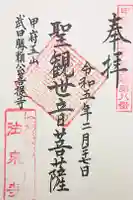 奉拝
令和五年二月七日
聖観世音菩薩
甲府五山
武田勝頼公菩提寺
法泉寺